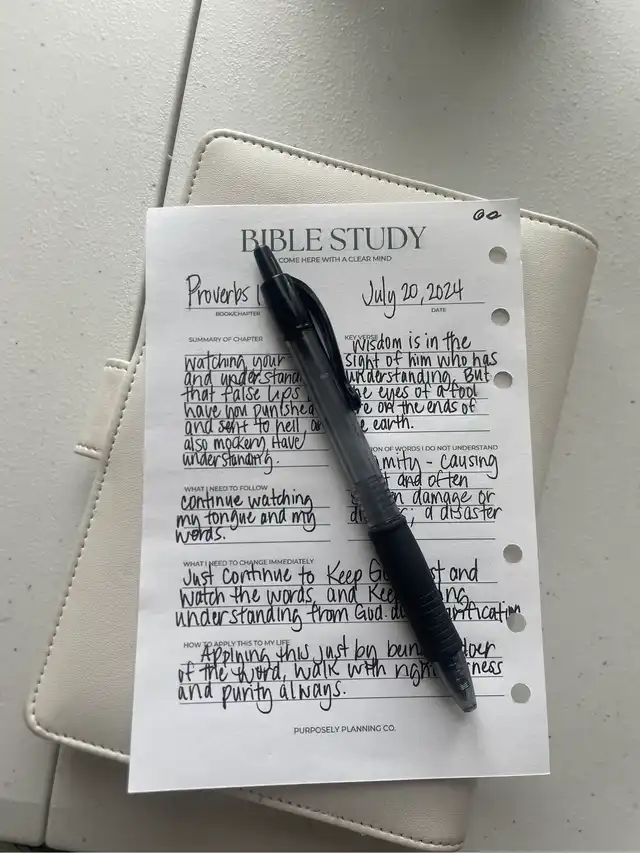 BIBLE STUDY
COME HERE WITH A CLEAR MIND
Proverbs 1
July 20, 2024
BOOK/CHAPTER
DATE
SUMMARY OF CHAPTER
watching your
and understand
that false lips
have you punished
and sent to hell,
also mockery have
understanding.
KEY VERSE
Wisdom is in the
sight of him who has
understanding, But
the eyes of a fool
are on the ends of
the earth.
ION OF WORDS I DO NOT UNDERSTAND
mity - causing
and often
damage or
a disaster
WHAT I NEED TO FOLLOW
continue watching
my tongue and my
words.
WHAT I NEED TO CHANGE IMMEDIATELY
Just continue to Keep and
watch the words, and
understanding from God.
HOW TO APPLY THIS TO MY LIFE
Applying this just by being doer
of the word, walk with
and purity always.
PURPOSELY PLANNING CO.